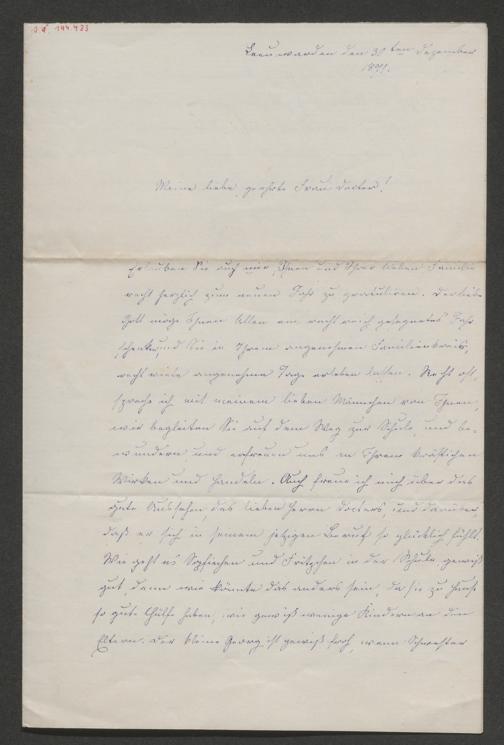 Leeuwarden den 30ten Dezember
Meine liebe, geehrte Frau Doctor!
Erlauben Sie auch mir, Ihnen und Ihrer lieben Familie
recht herzlich zum neuen Jahr zu gratuliren. Der liebe
Gott möge Ihnen Allen ein recht reich gesegnetes Jahr
schenken, und Sie in Ihrem angenehmen Familienkreise,
recht viele angenehme Tage erleben lassen. Recht oft
spreche ich mit meinem lieben Männchen von Ihnen,
wir begleiten Sie auf dem Weg zur Schule, und be-
wundern und erfreuen uns an Ihrem kräftigen
Wirken und Handeln. Auch freue ich mich über das
gute Aussehen, des lieben Herrn Doctors und darüber,
daß er sich in seinem jetzigen Beruf so glücklich fühlt.
Wie geht es Sophiechen und Fritzchen in der Schule, gewiß
gut, denn wie könnte das anders sein, da sie zu Hause
so gute Hülfe haben, wie gewiß wenige Kinder an den
Eltern. Der kleine Georg ist gewiß froh, wenn Schwester